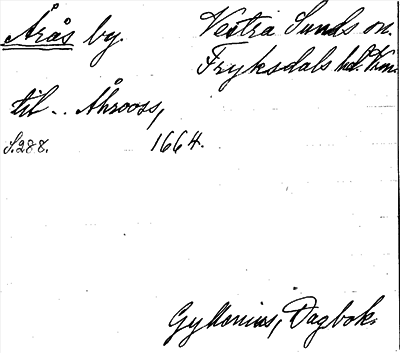 Årås by.
Vestra Sunds sn.
Fryksdals hd. Vrm.
til .. Åhrooss,
S. 288. 1664.
Gyllenius, Dagbok.